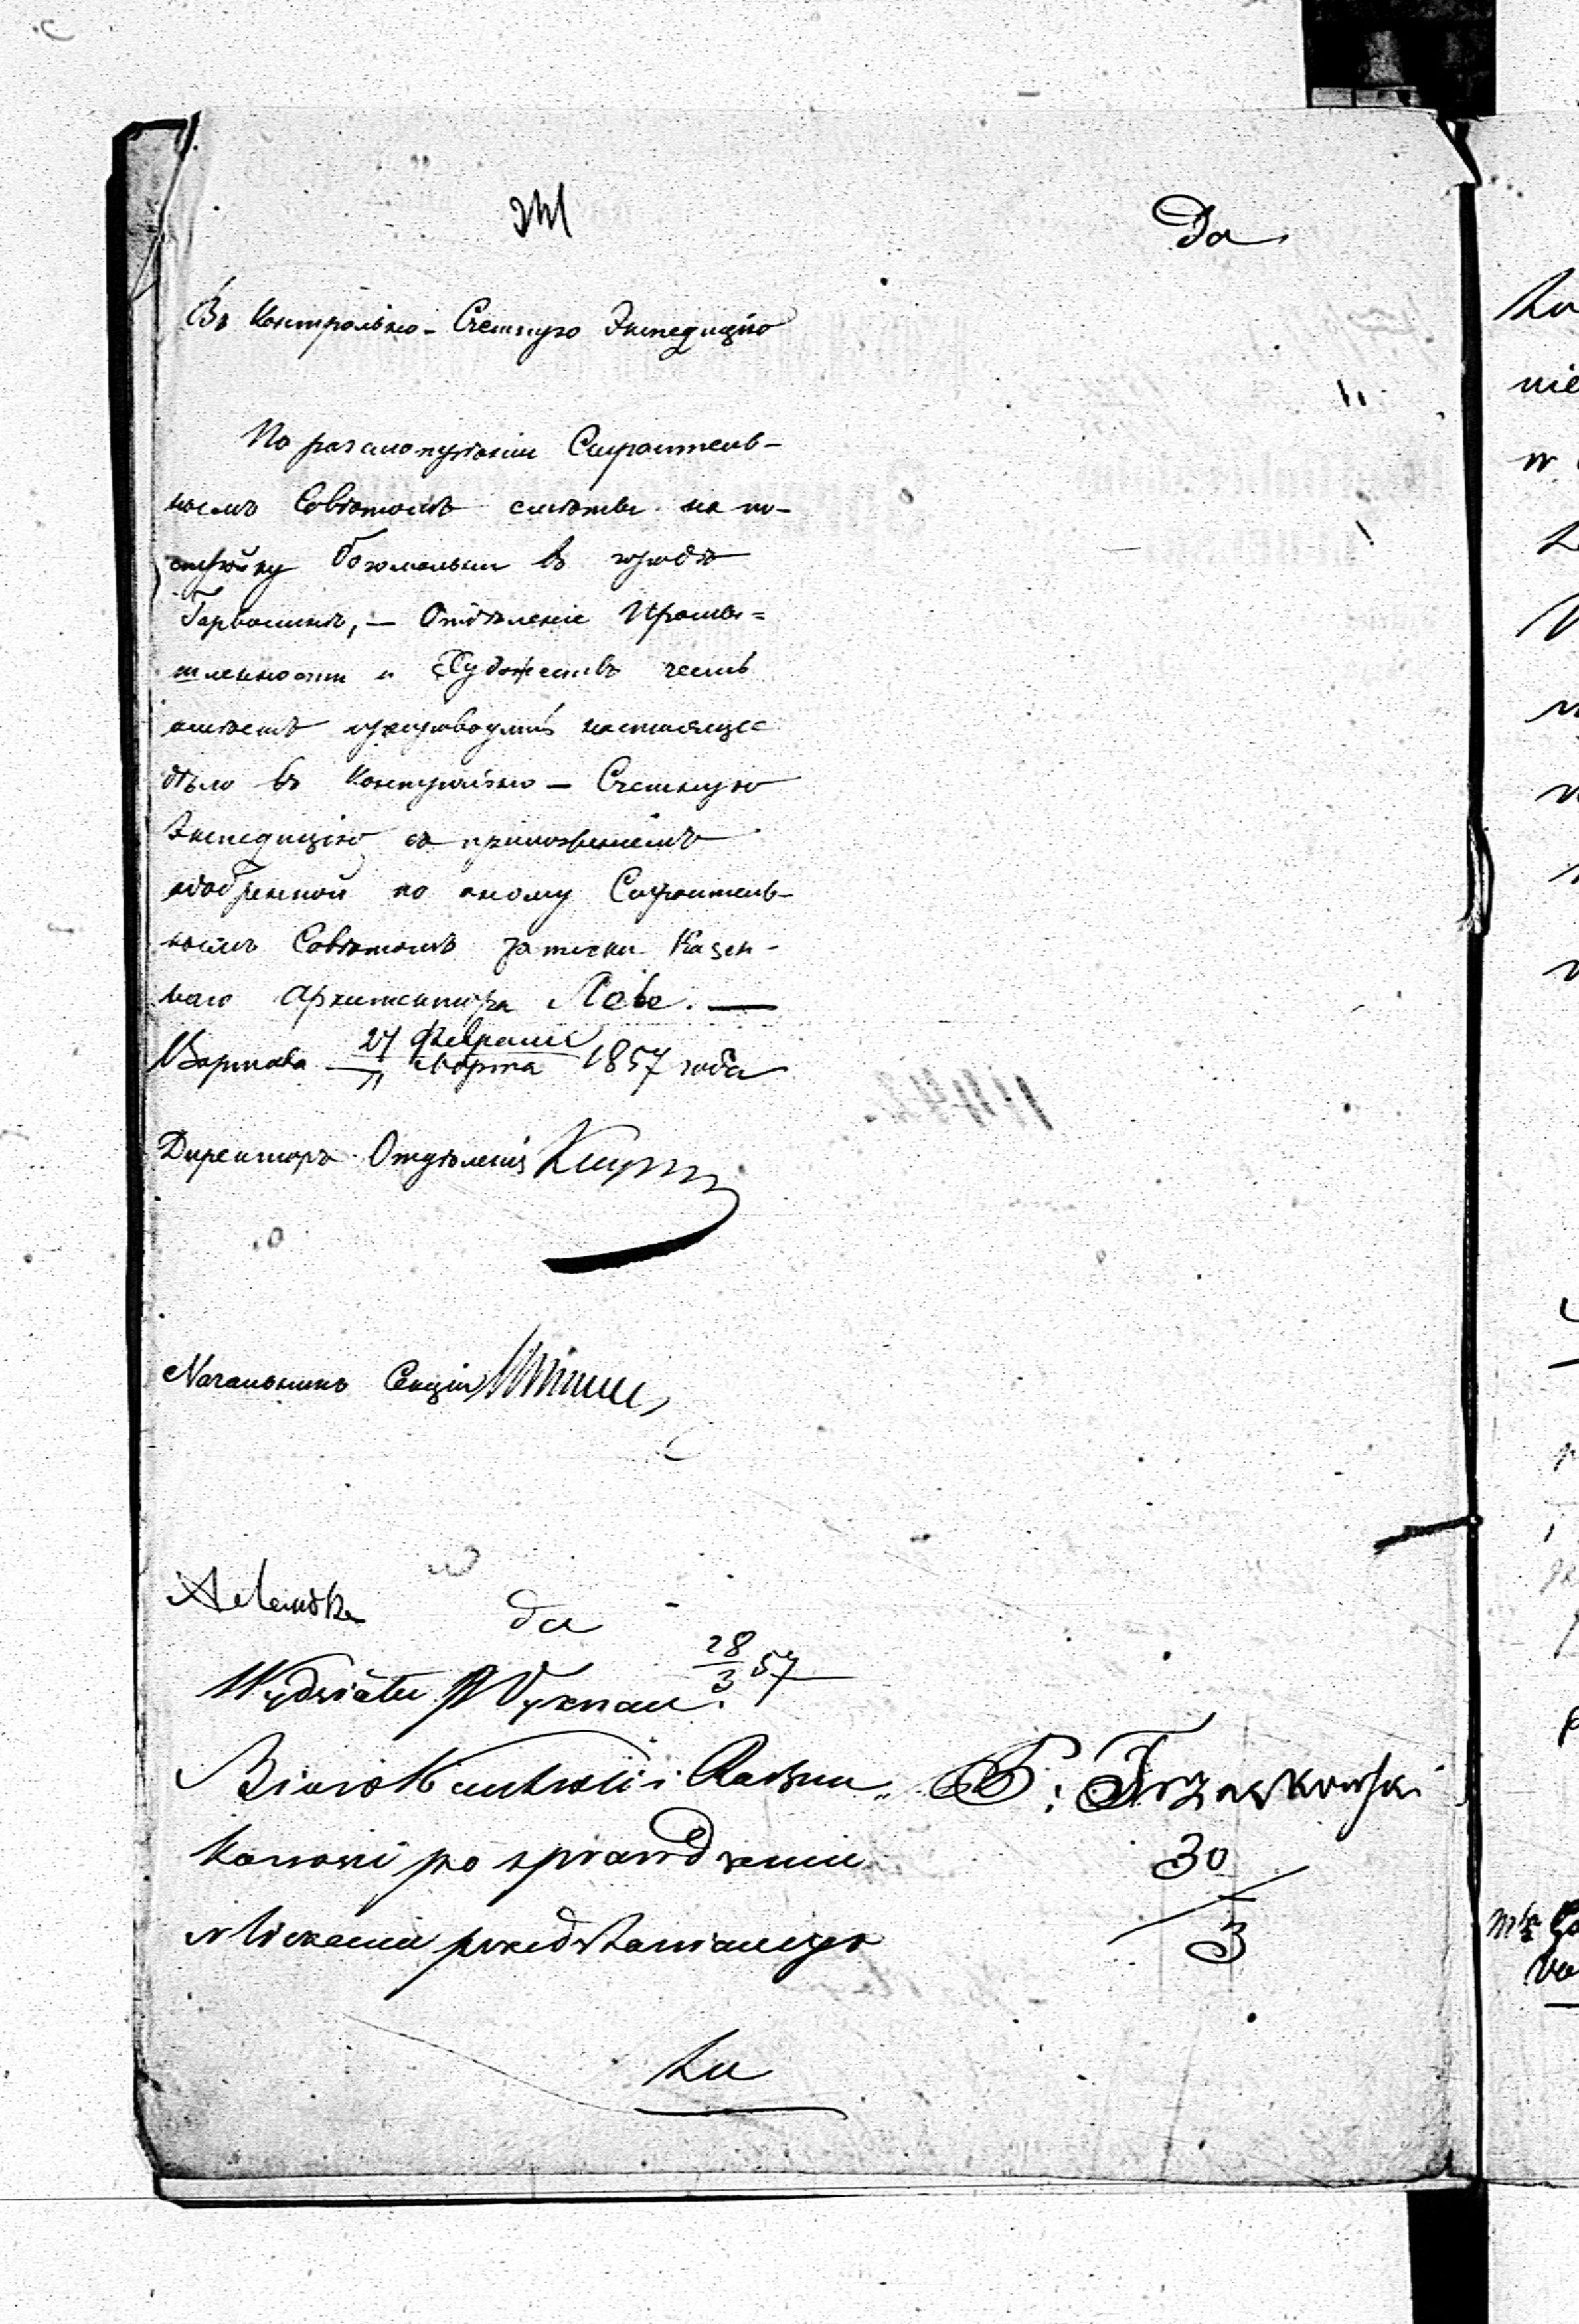 Въ Контрольно-Счетную Экспедицію
По разсмотрѣніи Строитель-
нымъ Совѣтомъ смѣты на по-
стройку богомольни въ городѣ
Гарволинѣ, — Отдѣленіе Промы=
шленности и Художествъ честь
имѣетъ препроводить настоящее
дѣло въ Контрольно — Счетную
Экспедицію съ приложеніемъ
одобренной по оному Строитель-
нымъ Совѣтомъ записки Казен-
наго Архитектора Лебе. —
Варшава 27 Февраля / 11 Марта 1857 года
Директоръ Отдѣленія
Начальникъ Секціи
Do
do
28/3 57
Wydziału Wyznań.
Biuro Kontroli i Rachun„
P. Trzaskowski
kowości po sprawdzeniu
30/3
w liczeniu przedstawionego